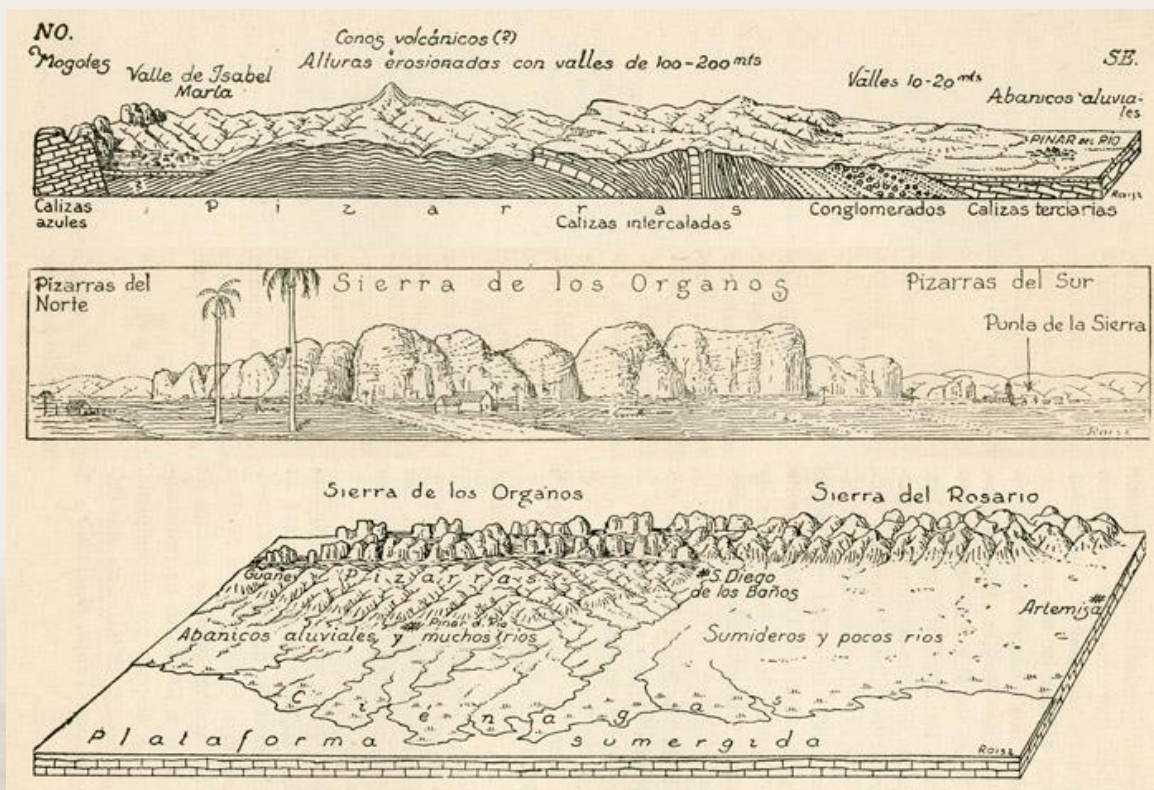 NO.
Mogotes
Valle de Isabel
María
Conos volcánicos (?)
Alturas erosionadas con valles de 100-200 mts
Valles 10-20 mts
SE.
Abanicos aluvia-
les
PINAR DEL RIO
Raisz
Calizas
azules
Pizarras
Calizas intercaladas
Conglomerados
Calizas terciarias
Pizarras del
Norte
Sierra de los Organos
Pizarras del Sur
Punta de la Sierra
Raisz
Sierra de los Organos
Sierra del Rosario
Guane
Pizarras
S. Diego
de los Baños
Artemisa
Pinar d. Rio
Abanicos aluviales y muchos rios
Sumideros y pocos rios
Ciénagas
Plataforma sumergida
Raisz